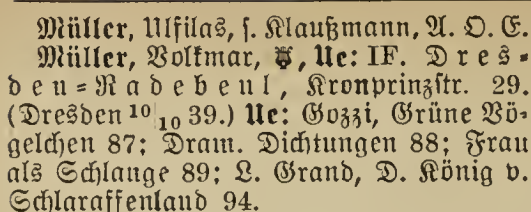 Müller, Ulfilas, s. Klaußmann, A. O. E.
Müller, Volkmar, Ue: IF. Dres-
den-Radebeul, Kronprinzstr. 29.
(Dresden 10|10 39.) Ue: Gozzi, Grüne Vö-
gelchen 87; Dram. Dichtungen 88; Frau
als Schlange 89; L. Grand, D. König v.
Schlaraffenland 94.